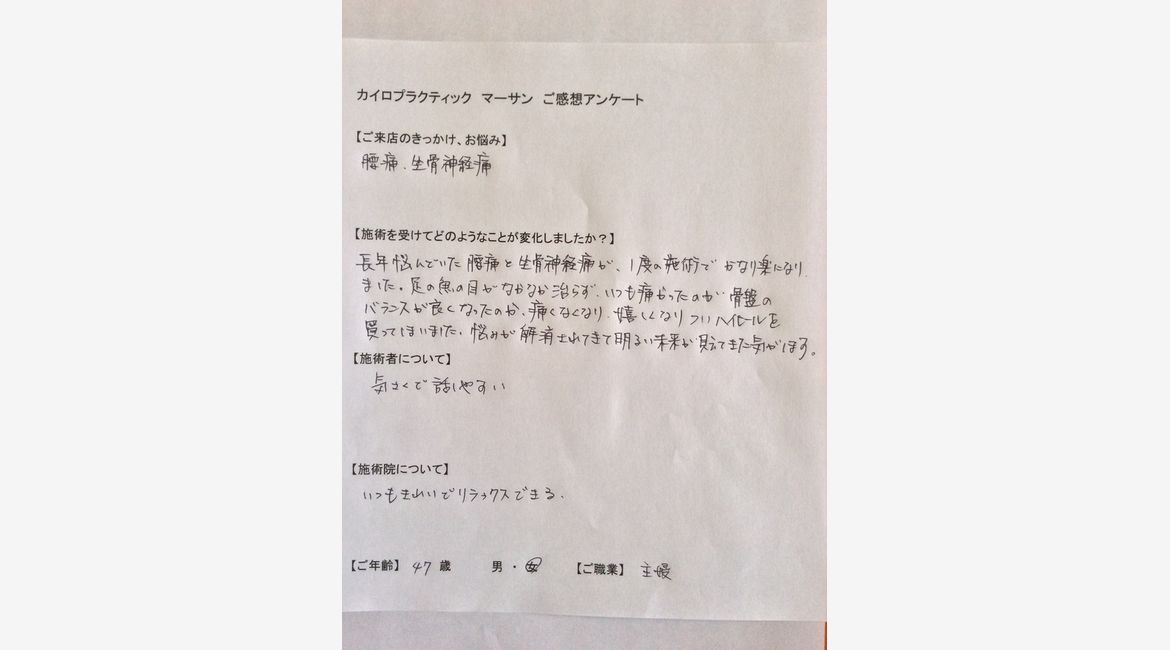 カイロプラクティック マーサン ご感想アンケート
【ご来店のきっかけ、お悩み】
腰痛、坐骨神経痛
【施術を受けてどのようなことが変化しましたか？】
長年悩んでいた腰痛と坐骨神経痛が、1度の施術でかなり楽になり
ました。足の魚の目がなかなか治らず、いつも痛かったのが骨盤の
バランスが良くなったのか、痛くなくなり、嬉しくなりついハイヒールを
買ってしまいました。悩みが解消されてきて明るい未来が見えてきた気がします。
【施術者について】
気さくで話しやすい
【施術院について】
いつもきれいでリラックスできる。
【ご年齢】 47 歳 男・女 【ご職業】 主婦